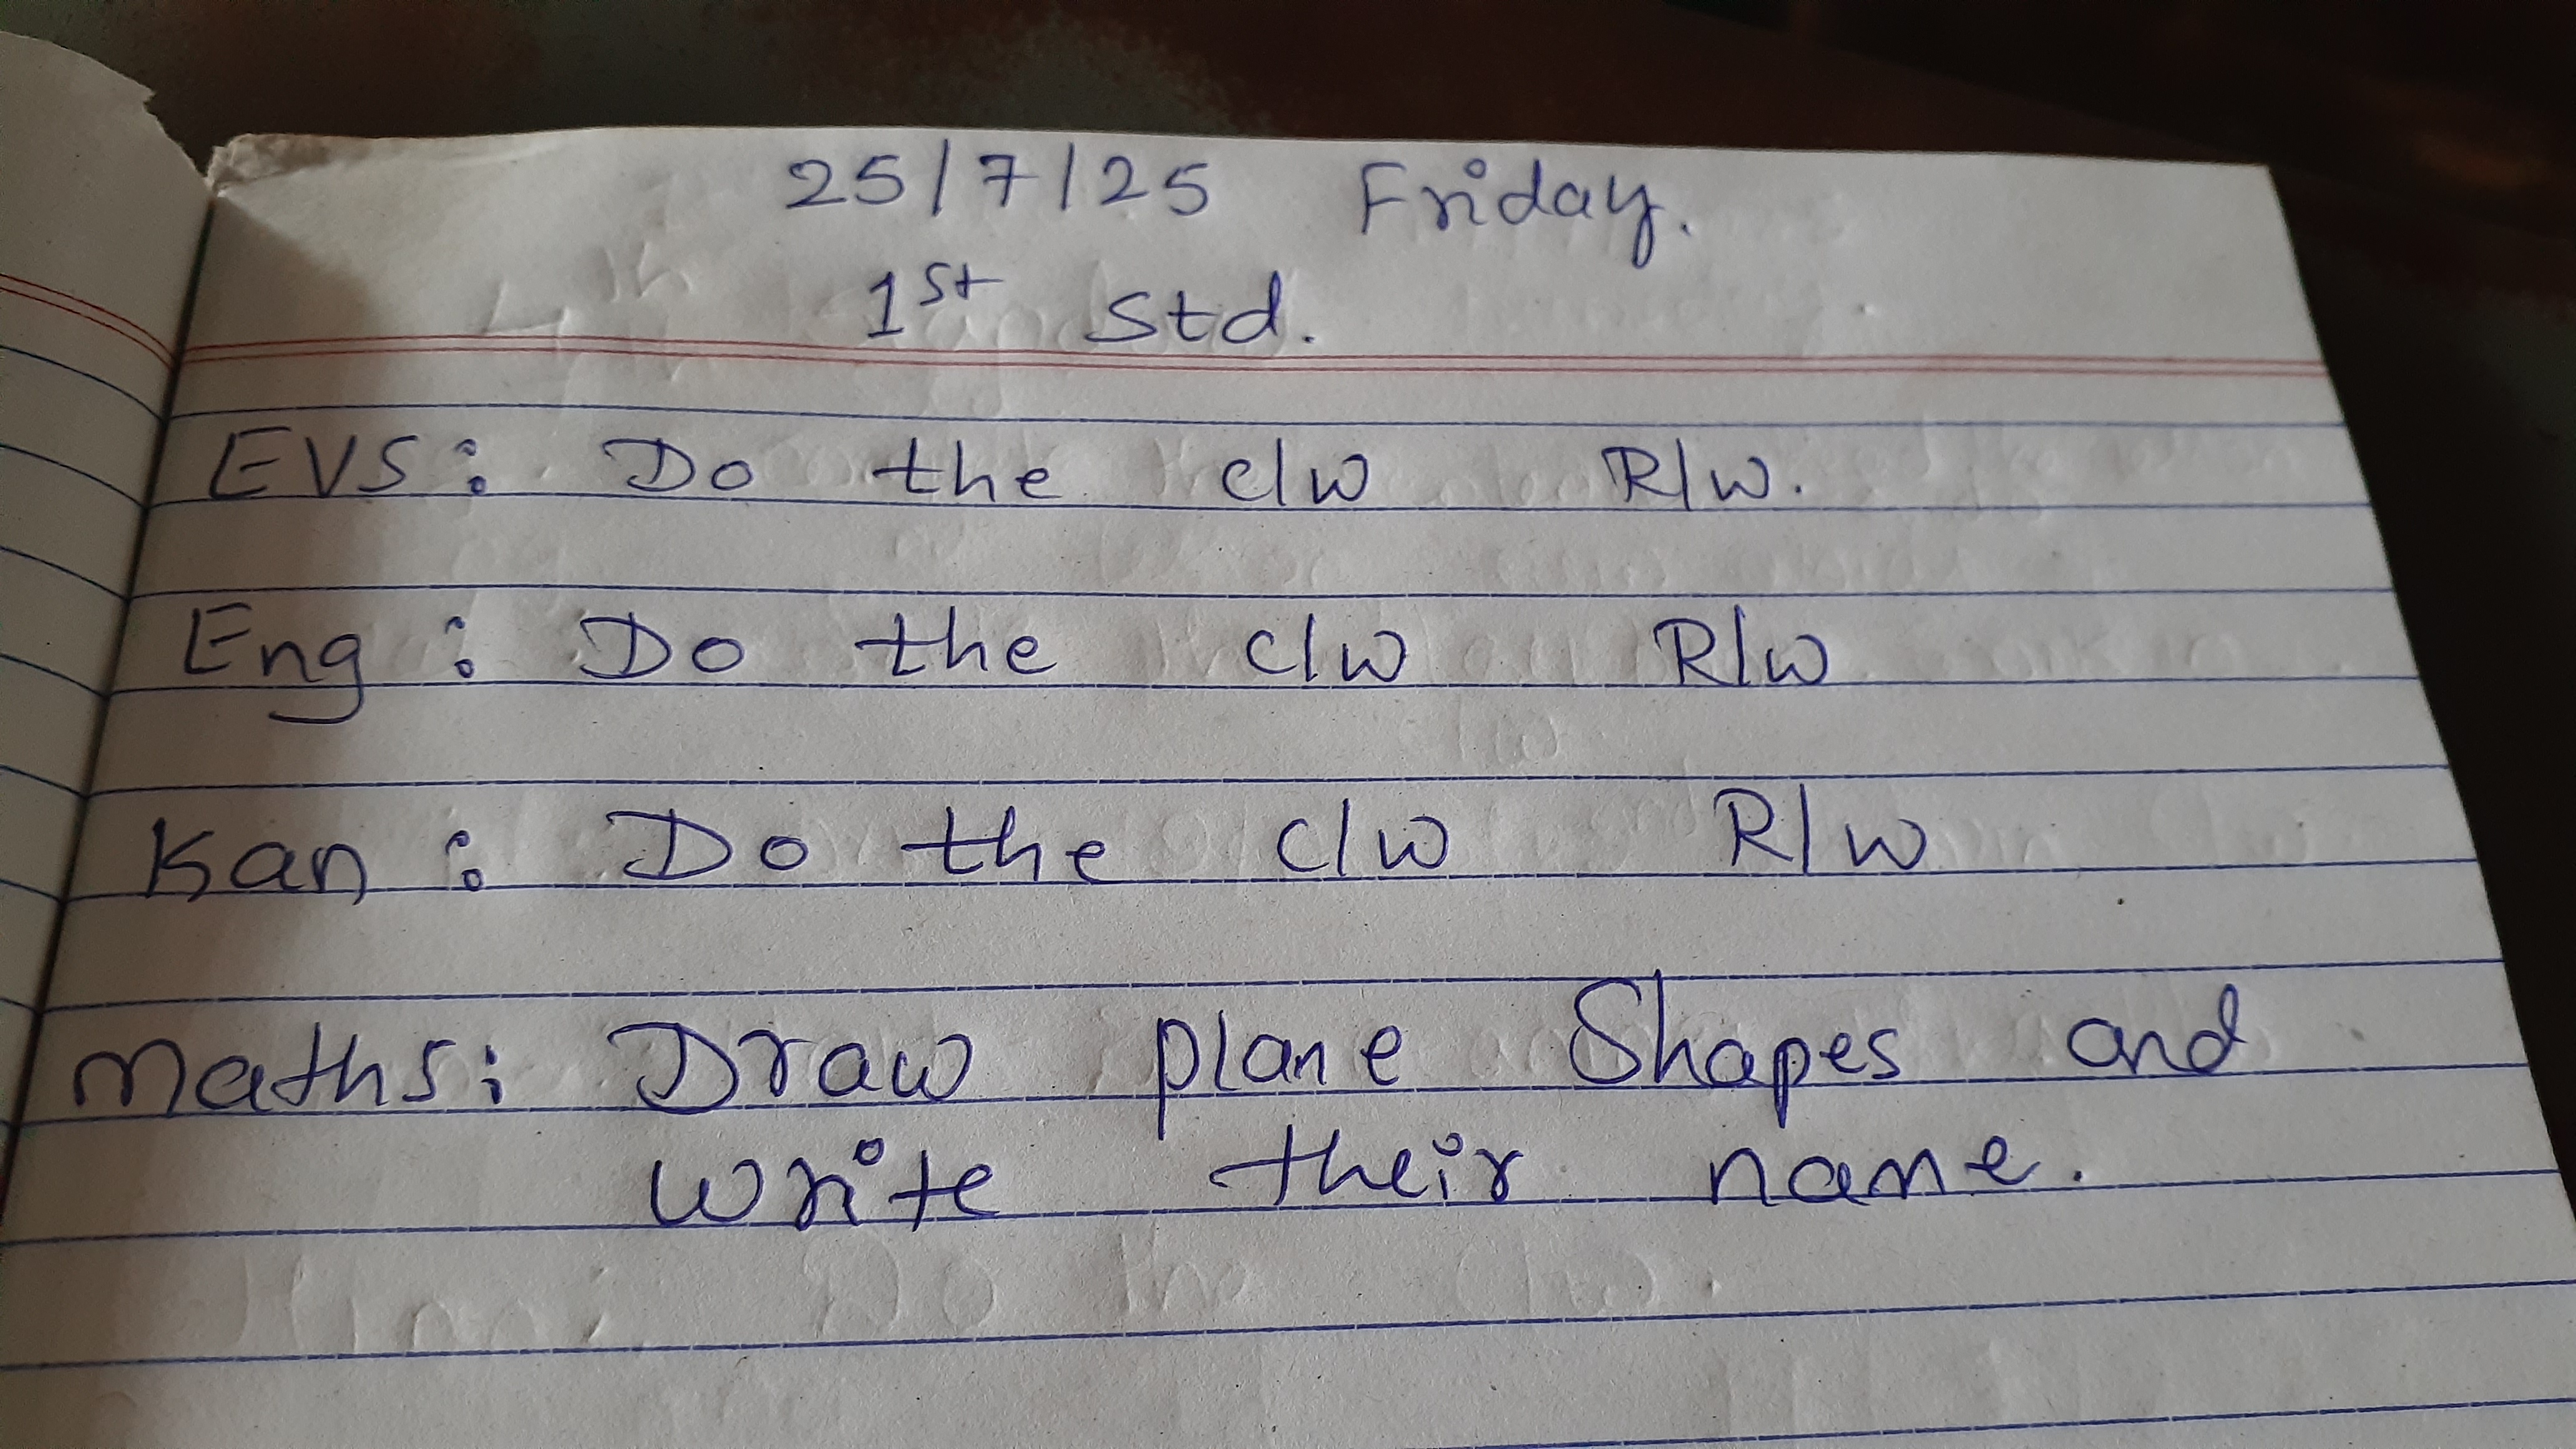 25/7/25 Friday.
1st Std.
EVS: Do the c/w R/w.
Eng: Do the c/w R/w
Kan: Do the c/w R/w
Maths: Draw plane Shapes and
write their name.